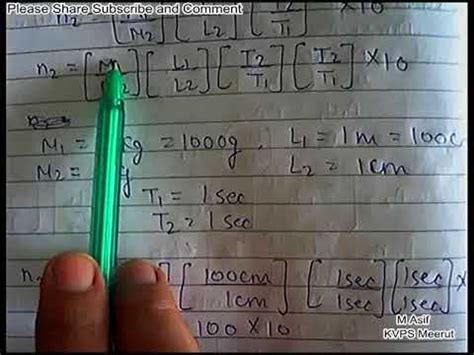 Please Share Subscribe and Comment
M2 L2 T1
n2 = [M1] [L1/L2] [T2/T1] [T2/T1] × 10
M1 = Kg = 1000g, L1 = 1m = 100c
M2 = g L2 = 1cm
T1 = 1sec
T2 = 1sec
[100cm/1cm] [1sec/1sec] [1sec/1sec] ×
M Asif
100 × 10
KVPS Meerut